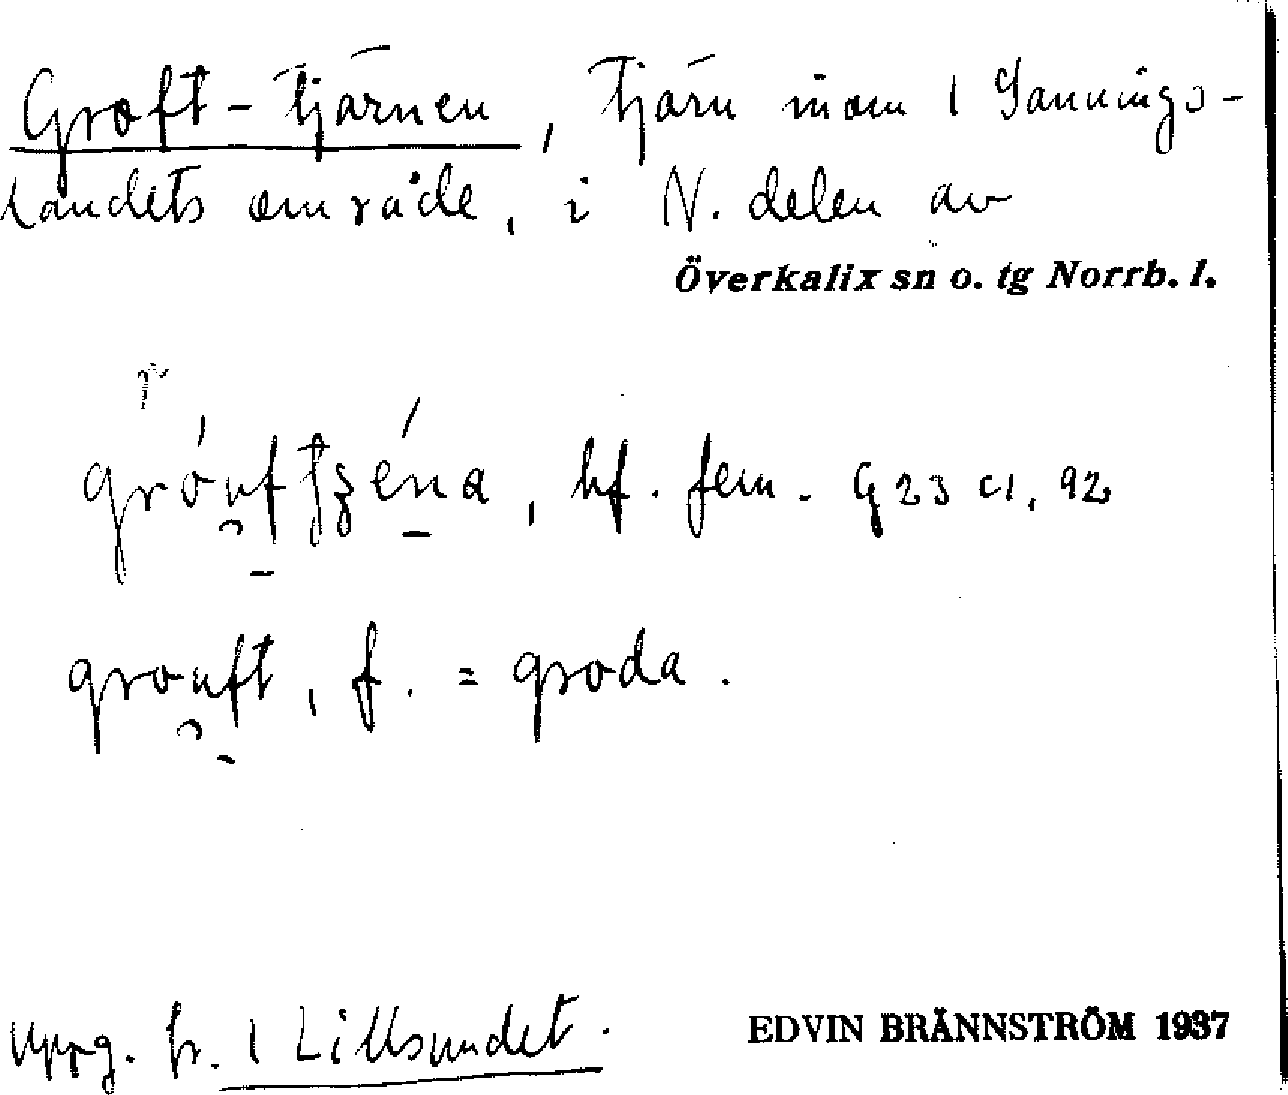 Groft-tjärnen, Tjärn inom 1 Sannings-
landets område, i N. delen av
Överkalix sn o. tg Norrb. l.
hf. fem. G 23 c1, 92
grouft, f. = groda.
Uppg. fr. 1 Lillsundet.
EDVIN BRÄNNSTRÖM 1937